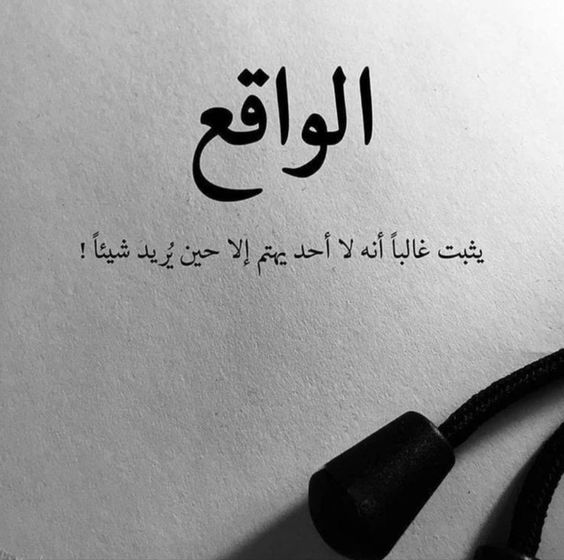 الواقع
يثبت غالباً أنه لا أحد يهتم إلا حين يُريد شيئاً !